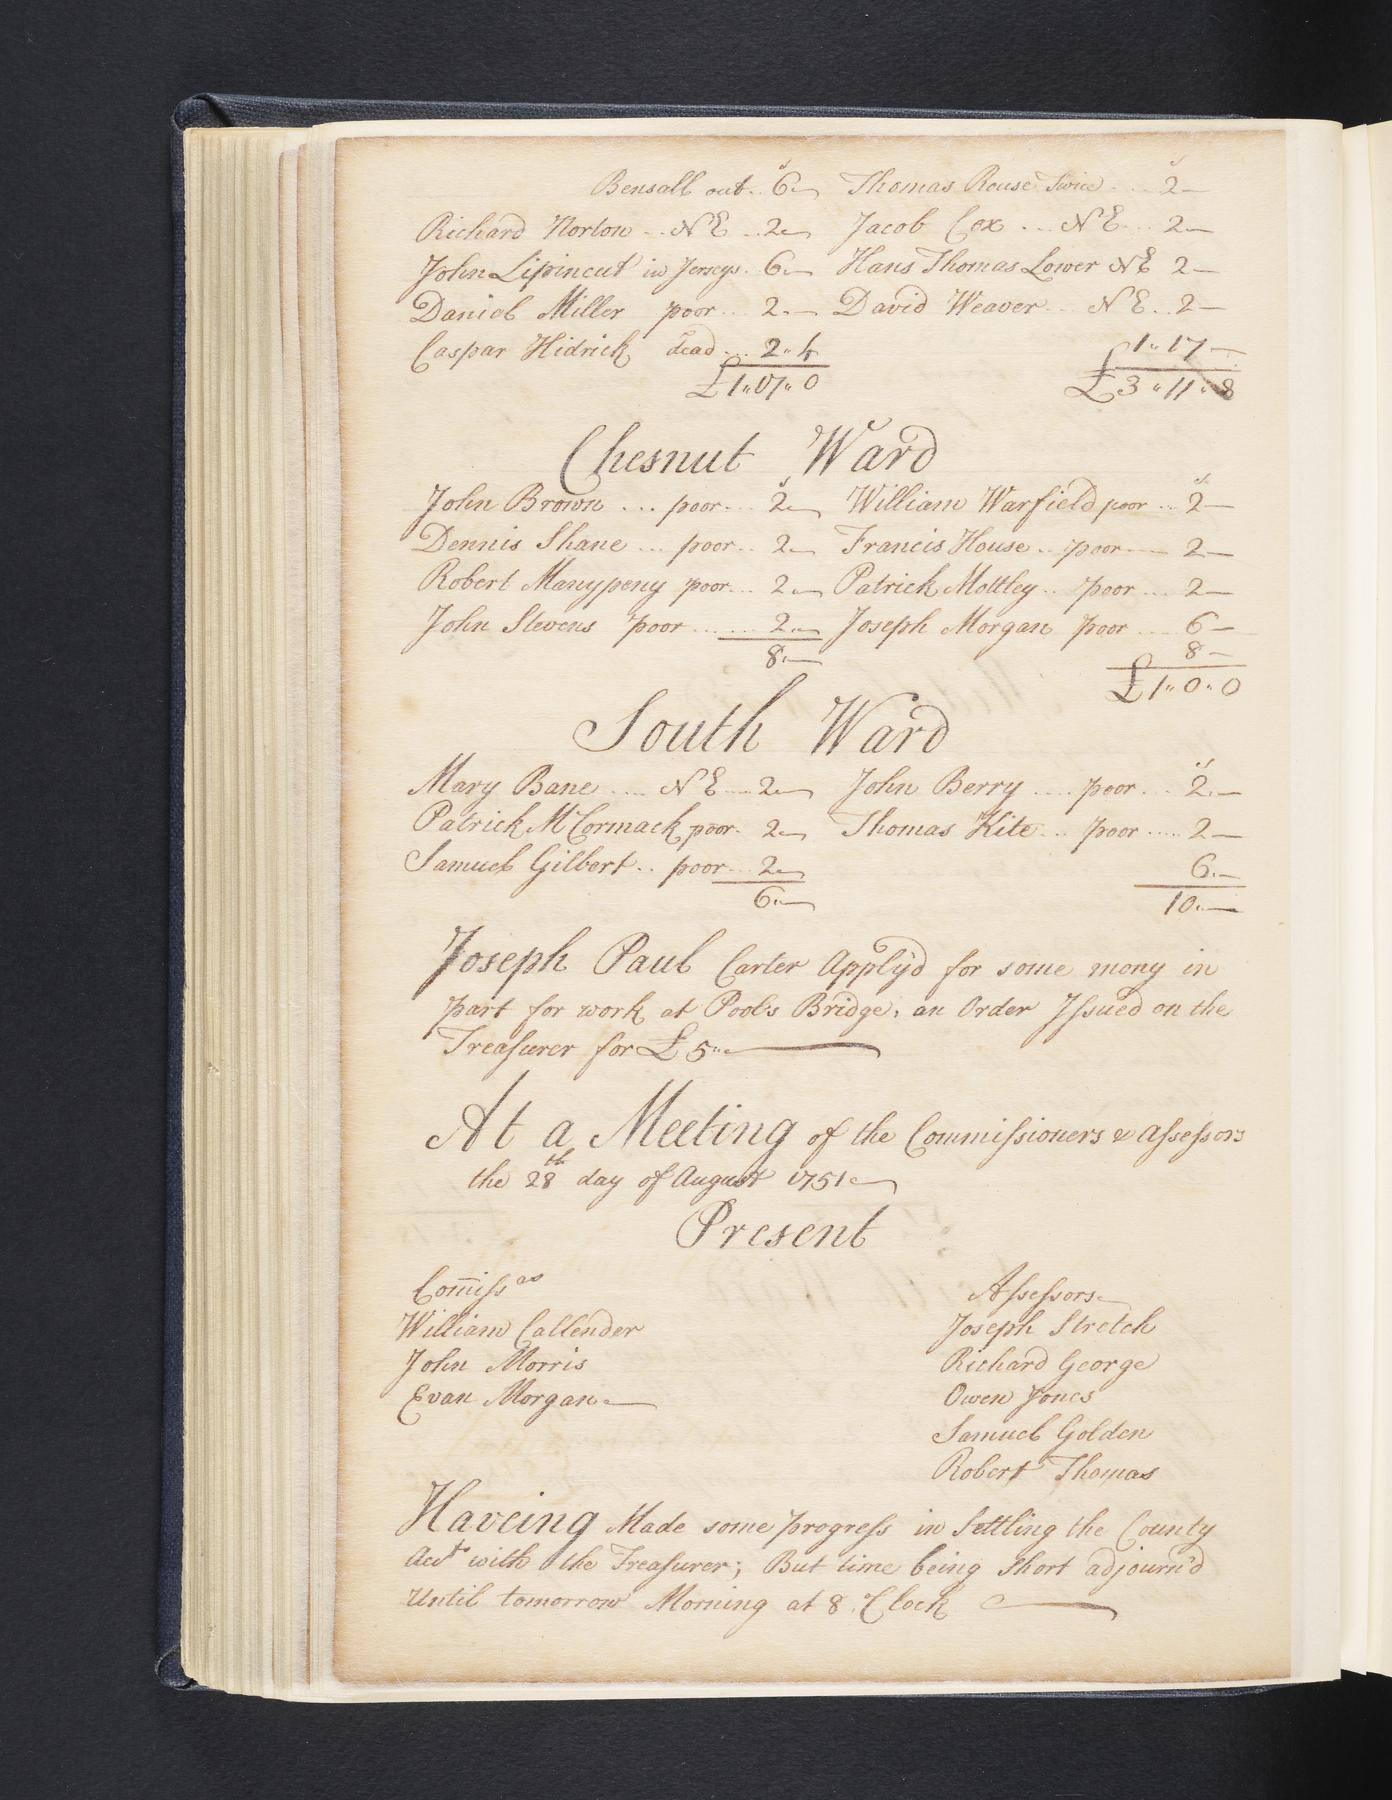 Bensall out .. 6 „ — Thomas Rouse Twice .... 2 —
Richard Norton .. N E ... 2 „ — Jacob Cox .... N E ... 2 —
John Lipincut in Jerseys . 6 „ — Hans Thomas Lower N E 2 —
Daniel Miller poor ... 2 „ — David Weaver ... N E .. 2 —
Caspar Hidrick dead ... 2 „ 4 £ 1 „ 17 —
£ 1 „ 17 „ 0 £ 3 „ 11 „ 8
Chesnut Ward
John Brown ... poor ... 2 „ — William Warfield poor ... 2 —
Dennis Shane ... poor .. 2 „ — Francis House .. poor ... 2 —
Robert Manypeny poor ... 2 „ — Patrick Mottley .. poor ... 2 —
John Stevens poor ...... 2 „ — Joseph Morgan poor .... 6 —
8 „ — 8 —
£ 1 „ 0 „ 0
South Ward
Mary Bane .... N E ... 2 „ — John Berry .... poor ... 2 „ —
Patrick McCormack poor . 2 „ — Thomas Kite ... poor ..... 2 —
Samuel Gilbert .. poor ... 2 „ — 6 „ —
6 „ — 10 „ —
Joseph Paul Carter Apply'd for some mony in
part for work at Pools Bridge, an Order Issued on the
Treasurer for £ 5 „ —
At a Meeting of the Commissioners & Assessors
the 28th day of August 1751 —
Present
Com̄iss.rs Assessors
William Callender Joseph Stretch
John Morris Richard George
Evan Morgan Owen Jones
Samuel Golden
Robert Thomas
Haveing Made some progress in Settling the County
Acct with the Treasurer; But time being Short adjourn'd
Until tomorrow Morning at 8 . Clock —